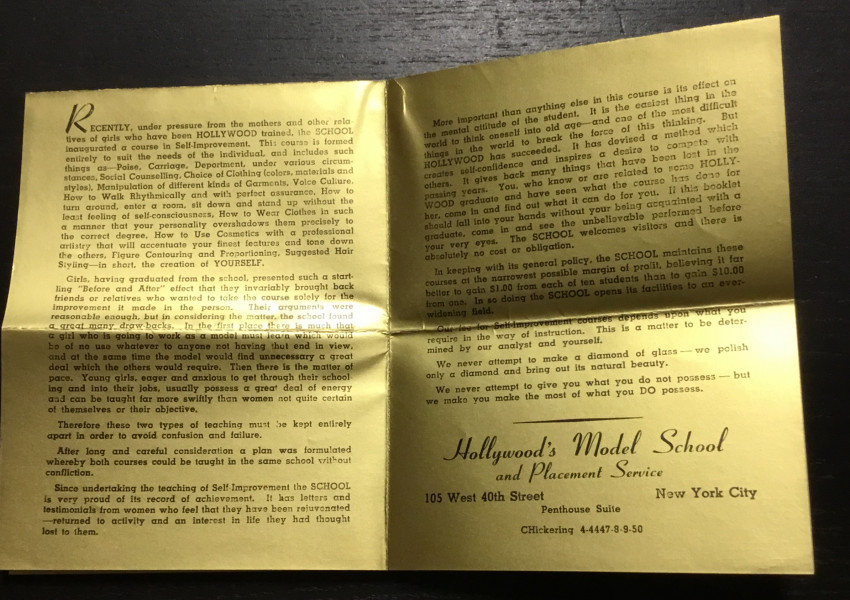 RECENTLY, under pressure from the mothers and other rela-
tives of girls who have been HOLLYWOOD trained, the SCHOOL
inaugurated a course in Self-Improvement. This course is formed
entirely to suit the needs of the individual, and includes such
things as—Poise, Carriage, Department, under various circum-
stances, Social Counselling, Choice of Clothing (colors, materials and
styles), Manipulation of different kinds of Garments, Voice Culture,
How to Walk Rhythmically and with perfect assurance, How to
turn around, enter a room, sit down and stand up without the
least feeling of self-consciousness, How to Wear Clothes in such
a manner that your personality overshadows them precisely to
the correct degree, How to Use Cosmetics with a professional
artistry that will accentuate your finest features and tone down
the others, Figure Contouring and Proportioning, Suggested Hair
Styling—in short, the creation of YOURSELF.
Girls, having graduated from the school, presented such a start-
ling "Before and After" effect that they invariably brought back
friends or relatives who wanted to take the course solely for the
improvement it made in the person. Their arguments were
reasonable enough, but in considering the matter, the school found
a great many draw-backs. In the first place there is much that
a girl who is going to work as a model must learn which would
be of no use whatever to anyone not having that end in view,
and at the same time the model would find unnecessary a great
deal which the others would require. Then there is the matter of
pace. Young girls, eager and anxious to get through their school-
ing and into their jobs, usually possess a great deal of energy
and can be taught far more swiftly than women not quite certain
of themselves or their objective.
Therefore these two types of teaching must be kept entirely
apart in order to avoid confusion and failure.
After long and careful consideration a plan was formulated
whereby both courses could be taught in the same school without
confliction.
Since undertaking the teaching of Self-Improvement the SCHOOL
is very proud of its record of achievement. It has letters and
testimonials from women who feel that they have been rejuvenated
—returned to activity and an interest in life they had thought
lost to them.
More important than anything else in this course is its effect on
the mental attitude of the student. It is the easiest thing in the
world to think oneself into old age—and one of the most difficult
things in the world to break the force of this thinking. But
HOLLYWOOD has succeeded. It has devised a method which
creates self-confidence and inspires a desire to compete with
others. It gives back many things that have been lost in the
passing years. You, who know or are related to some HOLLY-
WOOD graduate and have seen what the course has done for
her, come in and find out what it can do for you. If this booklet
should fall into your hands without your being acquainted with a
graduate, come in and see the unbelievable performed before
your very eyes. The SCHOOL welcomes visitors and there is
absolutely no cost or obligation.
In keeping with its general policy, the SCHOOL maintains these
courses at the narrowest possible margin of profit, believing it far
better to gain $1.00 from each of ten students than to gain $10.00
from one. In so doing the SCHOOL opens its facilities to an ever-
widening field.
Our fee for Self-Improvement courses depends upon what you
require in the way of instruction. This is a matter to be deter-
mined by our analyst and yourself.
We never attempt to make a diamond of glass—we polish
only a diamond and bring out its natural beauty.
We never attempt to give you what you do not possess—but
we make you make the most of what you DO possess.
Hollywood's Model School
and Placement Service
105 West 40th Street New York City
Penthouse Suite
CHickering 4-4447-8-9-50